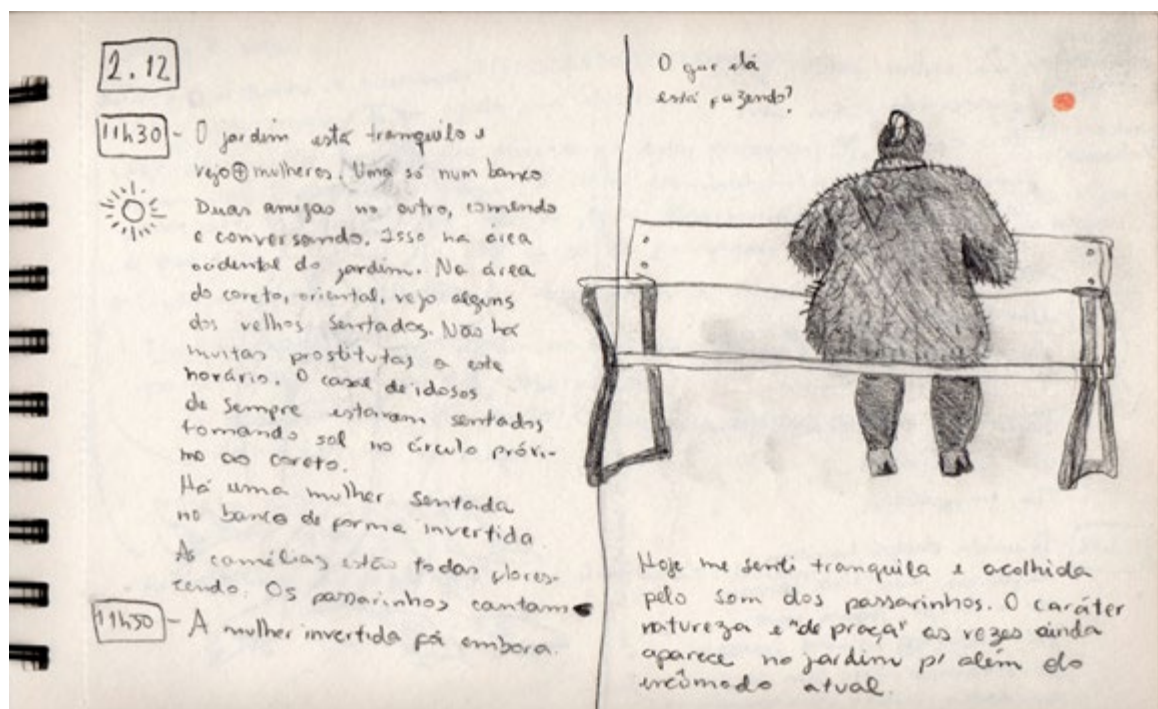 2.12
11h30 - O jardim está tranquilo e
vejo ⊕ mulheres. Uma só num banco
Duas amigas no outro, comendo
e conversando. Isso na área
ocidental do jardim. Na área
do coreto, oriental, vejo alguns
dos velhos sentados. Não há
muitas prostitutas a este
horário. O casal de idosos
de sempre estavam sentados
tomando sol no círculo próxi-
mo ao coreto.
Há uma mulher sentada
no banco de forma invertida.
As camélias estão todas flores-
cendo. Os passarinhos cantam
11h50 - A mulher invertida foi embora.
O que ela
está fazendo?
Hoje me senti tranquila e acolhida
pelo som dos passarinhos. O caráter
natureza e "de praça" as vezes ainda
aparece no jardim p/ além do
incômodo atual.